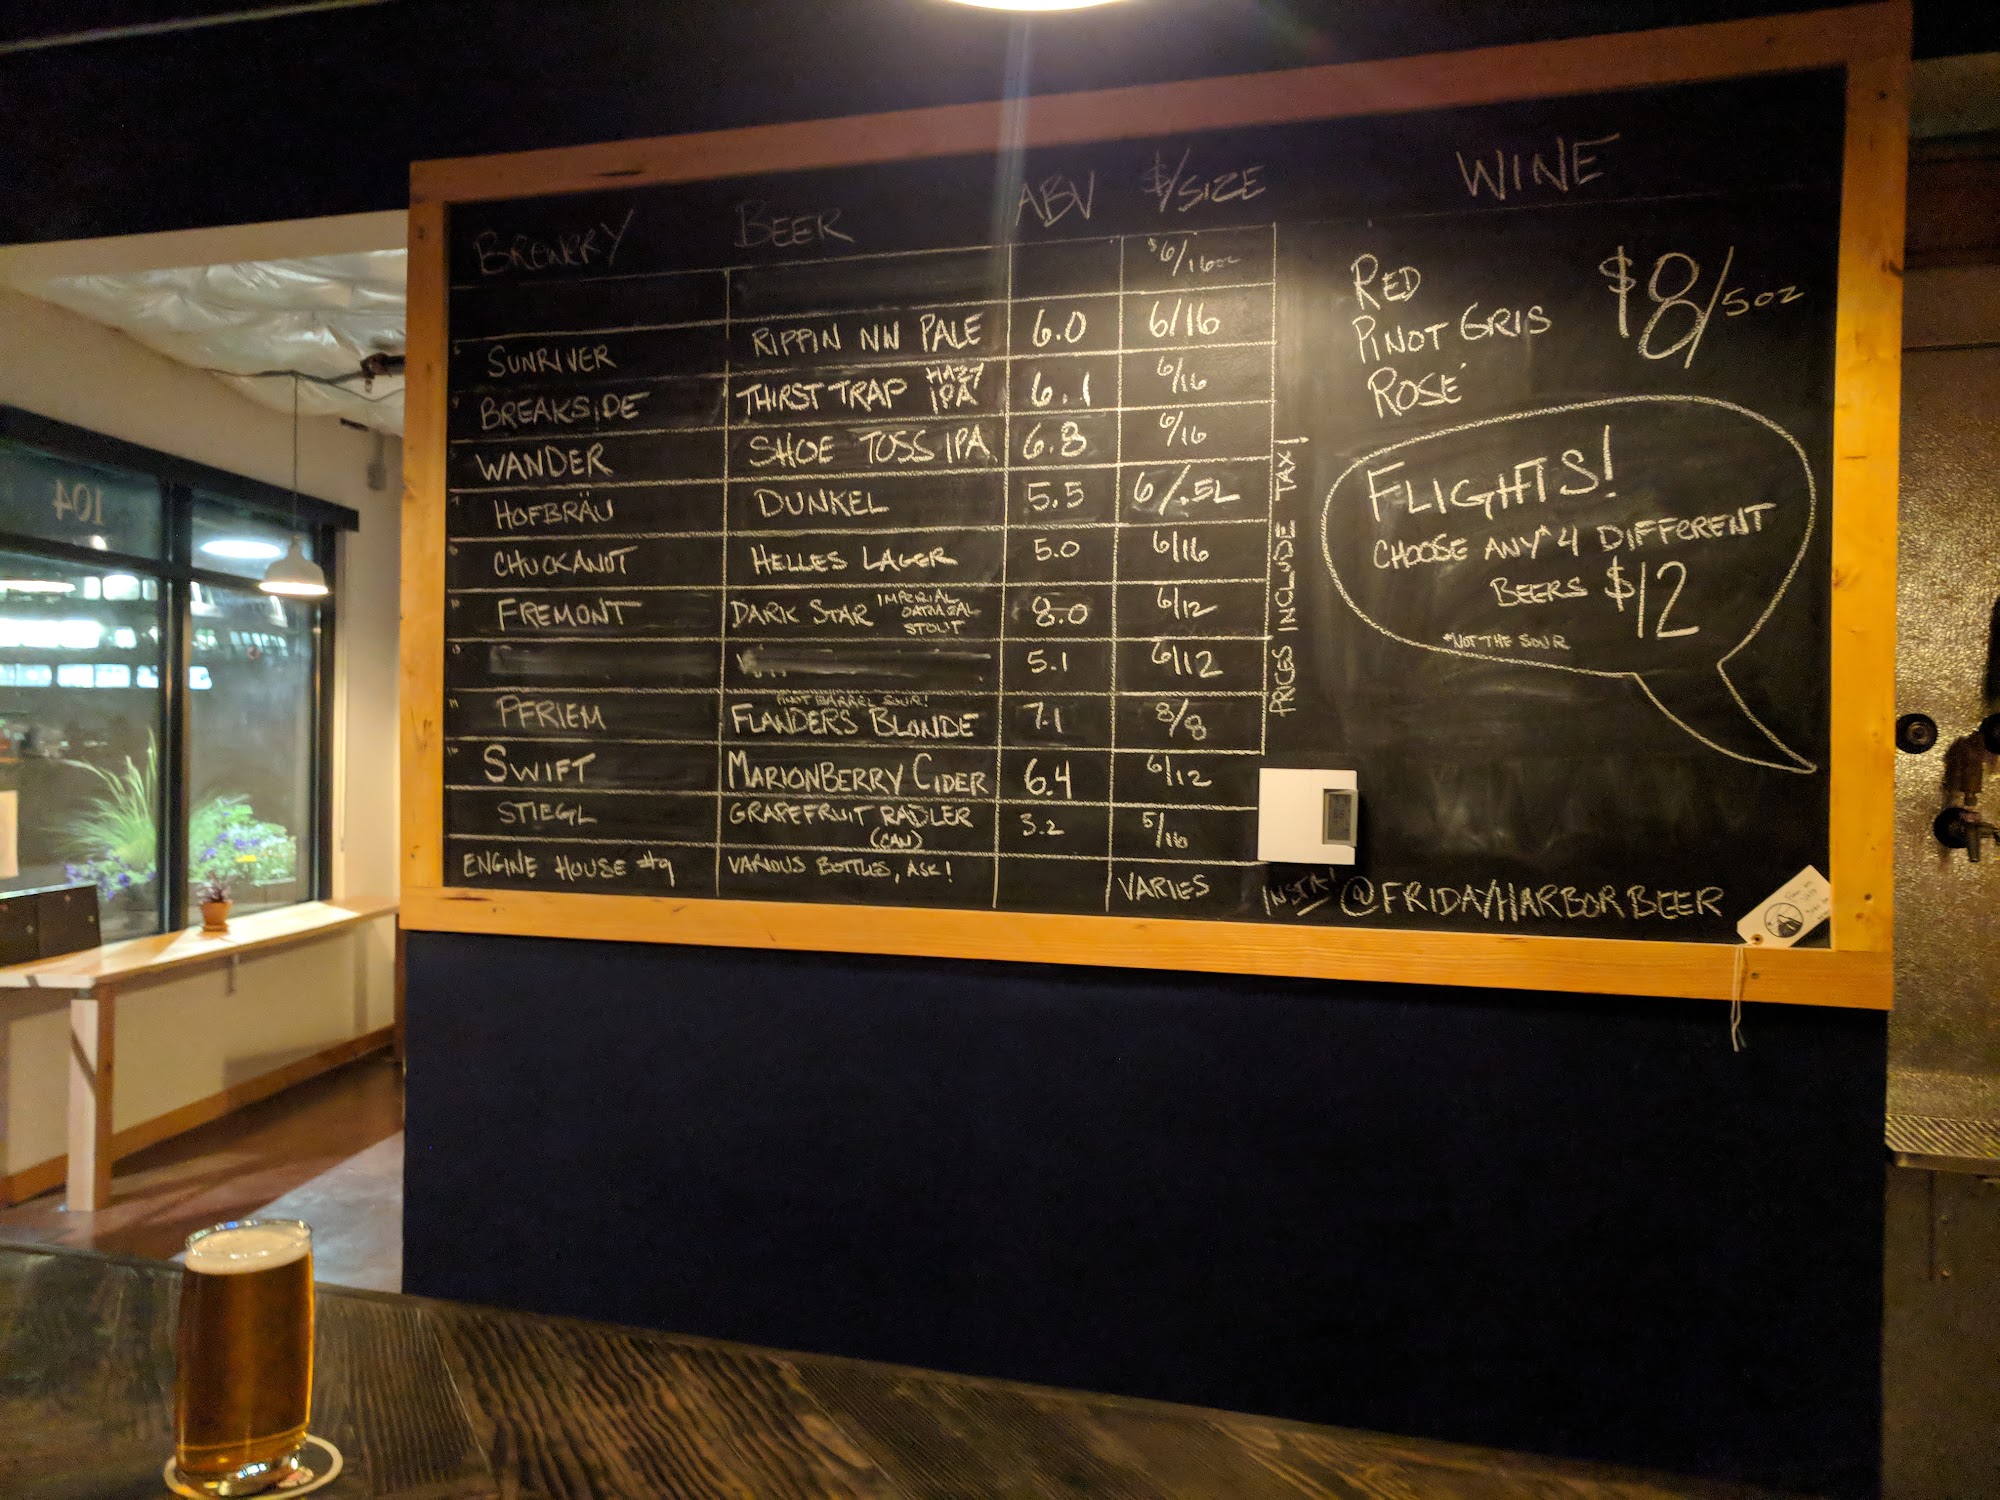 BREWERY BEER ABV $/SIZE
$6/16oz
SUNRIVER RIPPIN NW PALE 6.0 6/16
BREAKSIDE THIRST TRAP HAZY IPA 6.1 6/16
WANDER SHOE TOSS IPA 6.8 6/16
HOFBRÄU DUNKEL 5.5 6/.5L
CHUCKANUT HELLES LAGER 5.0 6/16
FREMONT DARK STAR IMPERIAL OATMEAL STOUT 8.0 6/12
5.1 6/12
PFRIEM PINOT BARREL SOUR! FLANDERS BLONDE 7.1 8/8
SWIFT MARIONBERRY CIDER 6.4 6/12
STIEGL GRAPEFRUIT RADLER (CAN) 3.2 5/16
ENGINE HOUSE #9 VARIOUS BOTTLES, ASK! VARIES
PRICES INCLUDE TAX!
WINE
RED
PINOT GRIS
ROSÉ
$8/5oz
FLIGHTS!
CHOOSE ANY* 4 DIFFERENT
BEERS $12
*NOT THE SOUR
INSTA! @FRIDAYHARBORBEER
104